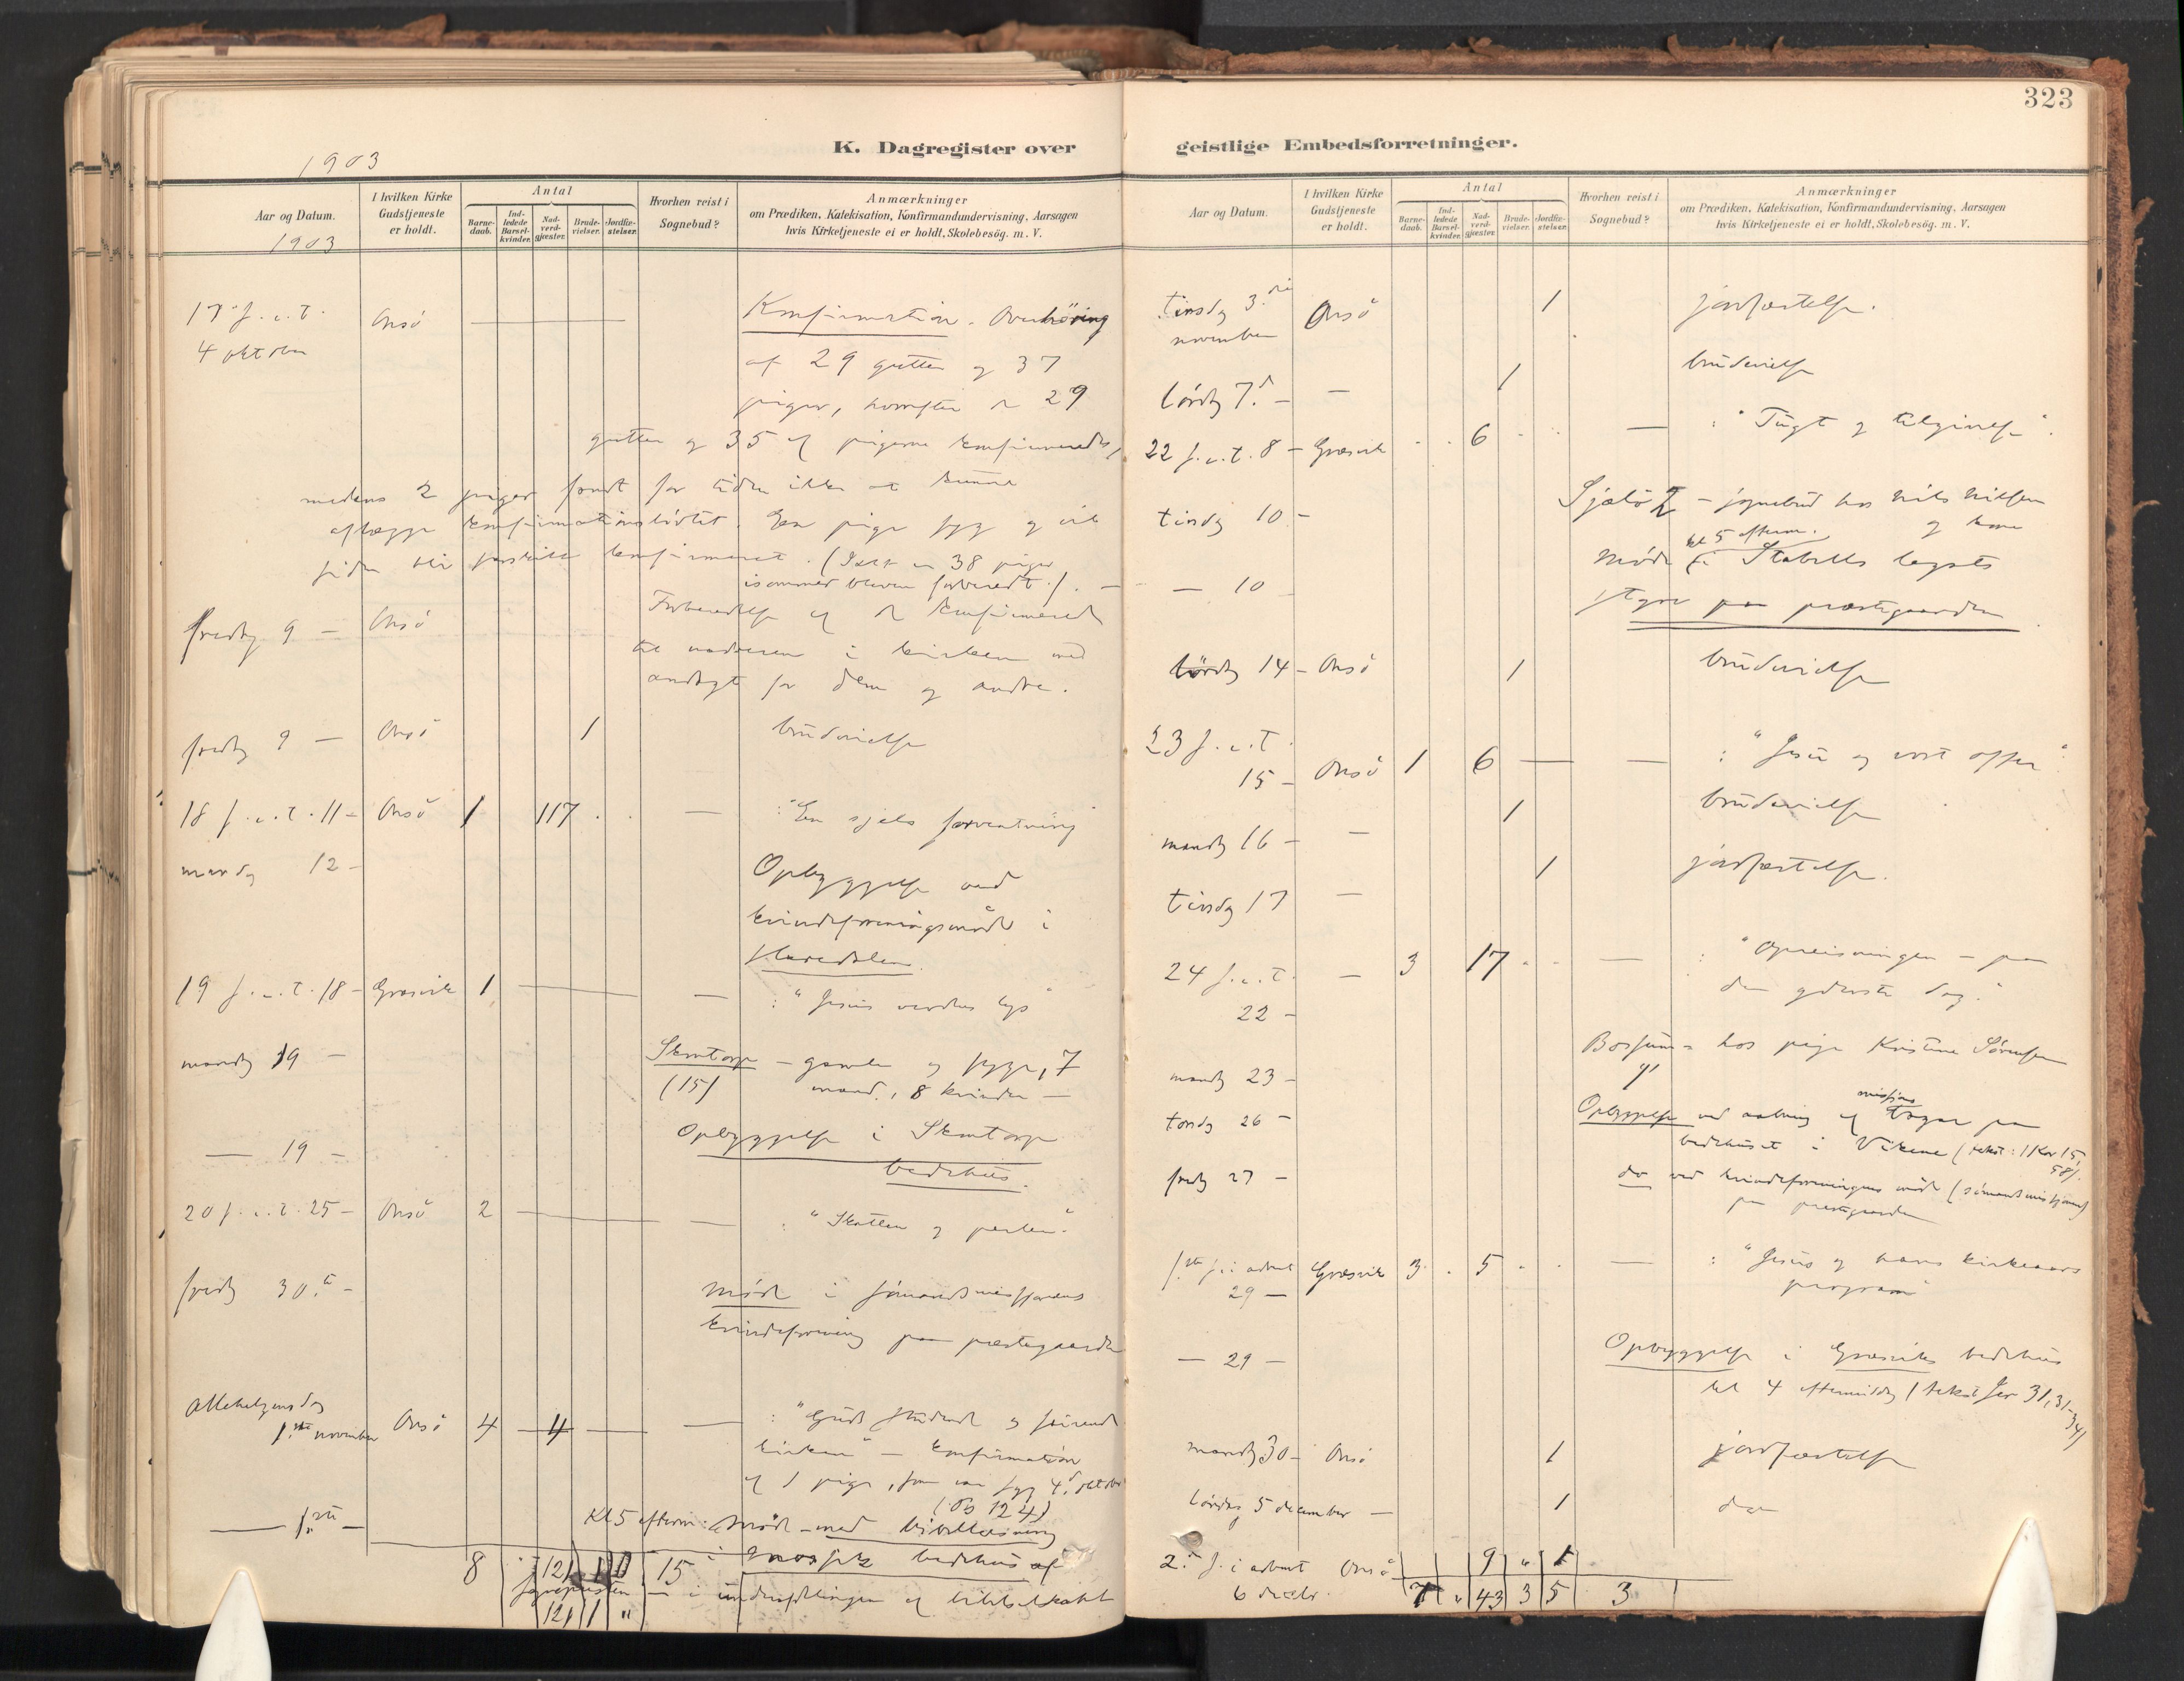 323
K. Dagregister over geistlige Embedsforretninger.
1903
Aar og Datum.
1903
I hvilken Kirke Gudstjeneste er holdt.
Antal
Barne-daab.
Ind-ledede Barsel-kvinder.
Nad-verd-gjæster.
Brude-vielser.
Jordfæ-stelser.
Hvorhen reist i Sognebud?
Anmærkninger
om Prædiken, Katekisation, Konfirmandundervisning, Aarsagen
hvis Kirketjeneste ei er holdt, Skolebesög. m. V.
17 s. e. t. Onsö Konfirmation. Overhöring
4 oktober af 29 gutter og 37
piger, hvorefter de 29
gutter og 35 af pigerne konfirmeredes,
medens 2 piger fandt for tiden ikke at kunne
aflægge konfirmationslöftet. En pige syg og vil
siden bli særskilt konfirmeret. (I alt er 38 piger
isommer bleven forberedt). —
fredag 9 — Onsö Forberedelse af de konfirmerede
til nadveren i kirken med
andagt for dem og andre.
fredag 9 — Onsö 1 brudevielse
18 s. e. t. 11 — Onsö 1 117 — : "En sjæls forventning"
mandag 12 — Opbyggelse ved
kvindeforeningsmöde i
19 s. e. t. 18 — Græsvik 1 — : "Jesus verdens lys"
mandag 19 — Skmtorp — gamle og syge, 7
(15) mænd, 8 kvinder —
— 19 — Opbyggelse i
bedehus.
20 s. e. t. 25 — Onsö 2 — : "Skatten og perlen".
fredag 30. — Möde i sömandsmissionens
kvindeforening paa præstegaarden
Allehelgensdag
1.ste november Onsö 4 4 — : "Guds stridende og seirende
kirke" — konfirmation
af 1 pige, som var syg 4. oktober
— 1ste — Kl 5 efterm: Möde med bibellæsning
i bedehus af
8 121 1 15
121 1 "
Aar og Datum.
I hvilken Kirke Gudstjeneste er holdt.
Antal
Barne-daab.
Ind-ledede Barsel-kvinder.
Nad-verd-gjæster.
Brude-vielser.
Jordfæ-stelser.
Hvorhen reist i Sognebud?
Anmærkninger
om Prædiken, Katekisation, Konfirmandundervisning, Aarsagen
hvis Kirketjeneste ei er holdt, Skolebesög. m. V.
tirsdag 3.die Onsö 1 jordfæstelse.
november
lördag 7. — — 1 brudevielse
22 s. e. t. 8 — Græsvik 6 — : "Tugt og tilgivelse".
tirsdag 10 — — sognebud hos Nils Nilsen
og kone
— 10 — Möde kl 5 efterm. i Stabells legats
styre paa præstegaarden
lördag 14 — Onsö 1 brudevielse
23 s. e. t.
15 — Onsö 1 6 — : "Jesu og vort offer".
mandag 16 — — 1 brudevielse
tirsdag 17 — 1 jordfæstelse.
24 s. e. t. — 3 17 — : "Opreisningen — paa
22 — den yderste dag."
mandag 23 — hos pige Kristine Sörensen
torsdag 26 — Opbyggelse ved aabning af missions paa
bedehuset i Vikene (tekst: 1 Kor 15,
58).
fredag 27 — do ved kvindeforeningens möde (sömandsmissjonen)
paa præstegaarden
1ste s. i advent Græsvik 3 5 — : "Jesus og hans kirkeaars
29 — program"
— 29 — Opbyggelse i Græsviks bedehus
kl 4 eftermiddag (tekst Jer 31,31-34)
mandag 30 — Onsö 1 jordfæstelse
lördag 5 december — 1 do
2. s. i advent Onsö 9 " 1
6 decbr. 7 " 43 3 5 3